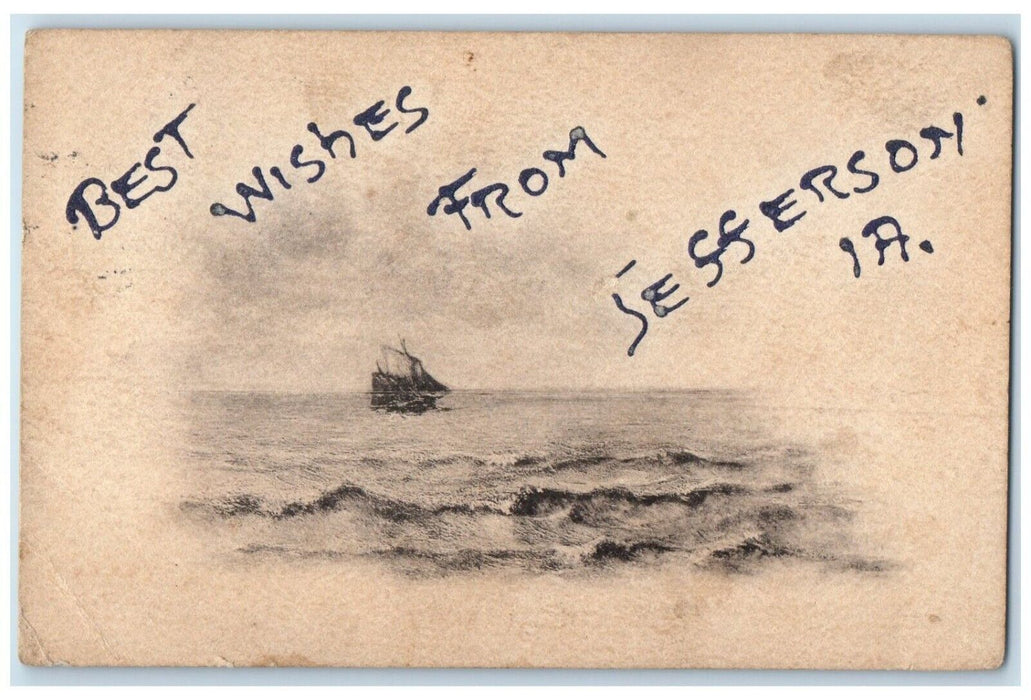 BEST WISHES FROM JEFFERSON
IA.